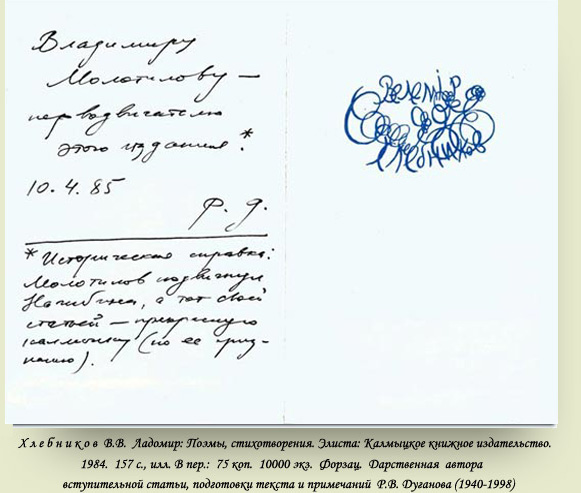 Владимиру
Молотилову —
перводвигателю
этого издания.*
10.4.85
Р. Д.
* Историческая справка:
Молотилов подвигнул
Нагибина, а тот своей
статьей — прекрасную
калмычку (по ее приз-
нанию).
Велемiр
Хлебников
Х л е б н и к о в В.В. Ладомир: Поэмы, стихотворения. Элиста: Калмыцкое книжное издательство.
1984. 157 с., илл. В пер.: 75 коп. 10000 экз. Форзац. Дарственная автора
вступительной статьи, подготовки текста и примечаний Р.В. Дуганова (1940-1998)